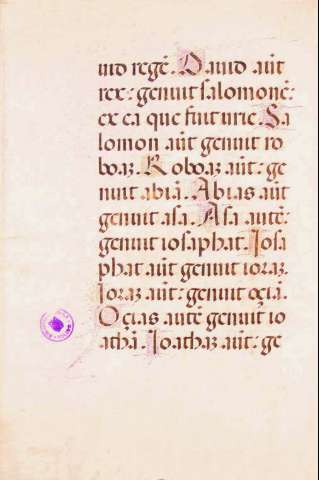 uid regē. Dauid aūt
rex: genuit salomonē:
ex ea que fuit urie. Sa
lomon aūt genuit ro
boaꝫ. Roboaꝫ aūt: ge
nuit abiā. Abias aūt
genuit asa. Asa autē:
genuit iosaphat. Iosa
phat aūt genuit ioraꝫ.
Ioraꝫ aūt: genuit oçiā.
Oçias autē genuit io
athā. Ioathaꝫ aūt: ge